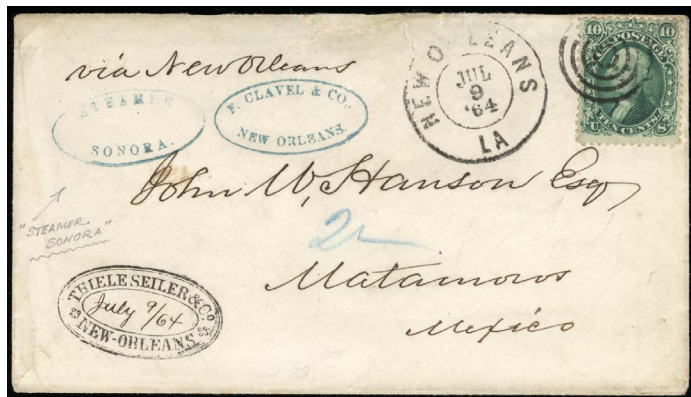 via New Orleans
STEAMER
SONORA.
F. CLAVEL & CO.
NEW ORLEANS.
NEW ORLEANS
JUL
9
'64
LA
10 10
U.S. POSTAGE
TEN CENTS
U S
John W. Hanson Esq
"STEAMER
SONORA"
2
Matamoros
Mexico
THIELE SEILER & Co
July 9/64
NEW-ORLEANS